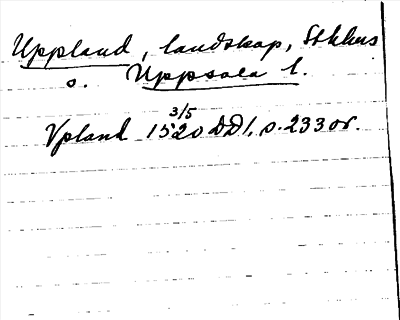 Uppland, landskap, Sthlms
o. Uppsala l.
3/5
Vpland 1520 DD1, s. 233 or.